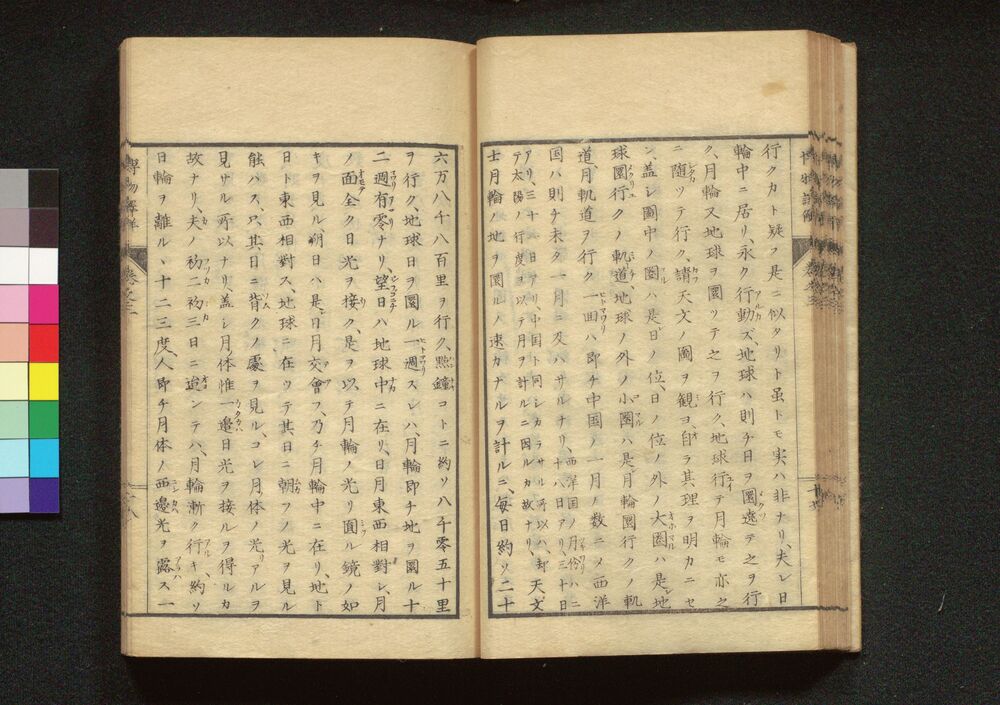 行クカト疑フ是ニ似タリト虽トモ実ハ非ナリ、夫レ日
輪中ニ居リ、永ク行動ズ、地球ハ則チ日ヲ圜遶テ之ヲ行
ク、月輪又地球ヲ圜ツテ之ヲ行ク、地球行テ月輪モ亦之
ニ随ツテ行ク、請天文ノ圖ヲ観ヨ、自ラ其理ヲ明カニセ
ン蓋シ圖中ノ圏ハ是日ノ位、日ノ位ノ外ノ大圏ハ是地
球圜行クノ軌道、地球ノ外ノ小圏ハ是月輪圜行クノ軌
道月軌道ヲ行ク一囬ハ即チ中国ノ一月ノ数ニメ西洋
国ハ則チ未タ一月ニ及ハサルナリ、西洋国ノ月份ハ二十八日アリ、三十日
アリ、三十一日アリ、中国ト同シカラサル所以ハ、却天文
テ太陽ノ行度ヲ以テ月ヲ計ルニ因ルカ故ナリ、
士月輪ノ地ヲ圜ルノ速カナルヲ計ルニ、毎日約ソ二十
六万八千八百里ヲ行ク、點鐘コトニ約ソ八千零五十里
ヲ行ク、地球日ヲ圜ル一週スレハ、月輪即チ地ヲ圜ル十
二週有零ナリ、望日ハ地球中ニ在リ、日月東西相對シ、月
ノ面全ク日光ヲ接ク、是ヲ以テ月輪ノ光リ圓ル鏡ノ如
キヲ見ル、朔日ハ是日月交會フ、乃チ月輪中ニ在リ、地ト
日ト東西相對ス、地球ニ在ツテ其日ニ朝フノ光ヲ見ル
能ハス、只其日ニ背クノ處ヲ見ル、コレ月体ノ光リアルヲ
見サル所以ナリ、蓋シ月体惟一邉日光ヲ接ルヲ得ルカ
故ナリ、夫ノ初二初三日ニ迨ンテハ、月輪漸ク行キ、約ソ
日輪ヲ離ルヽ十二三度、人即チ月体ノ西邉光ヲ露ス一